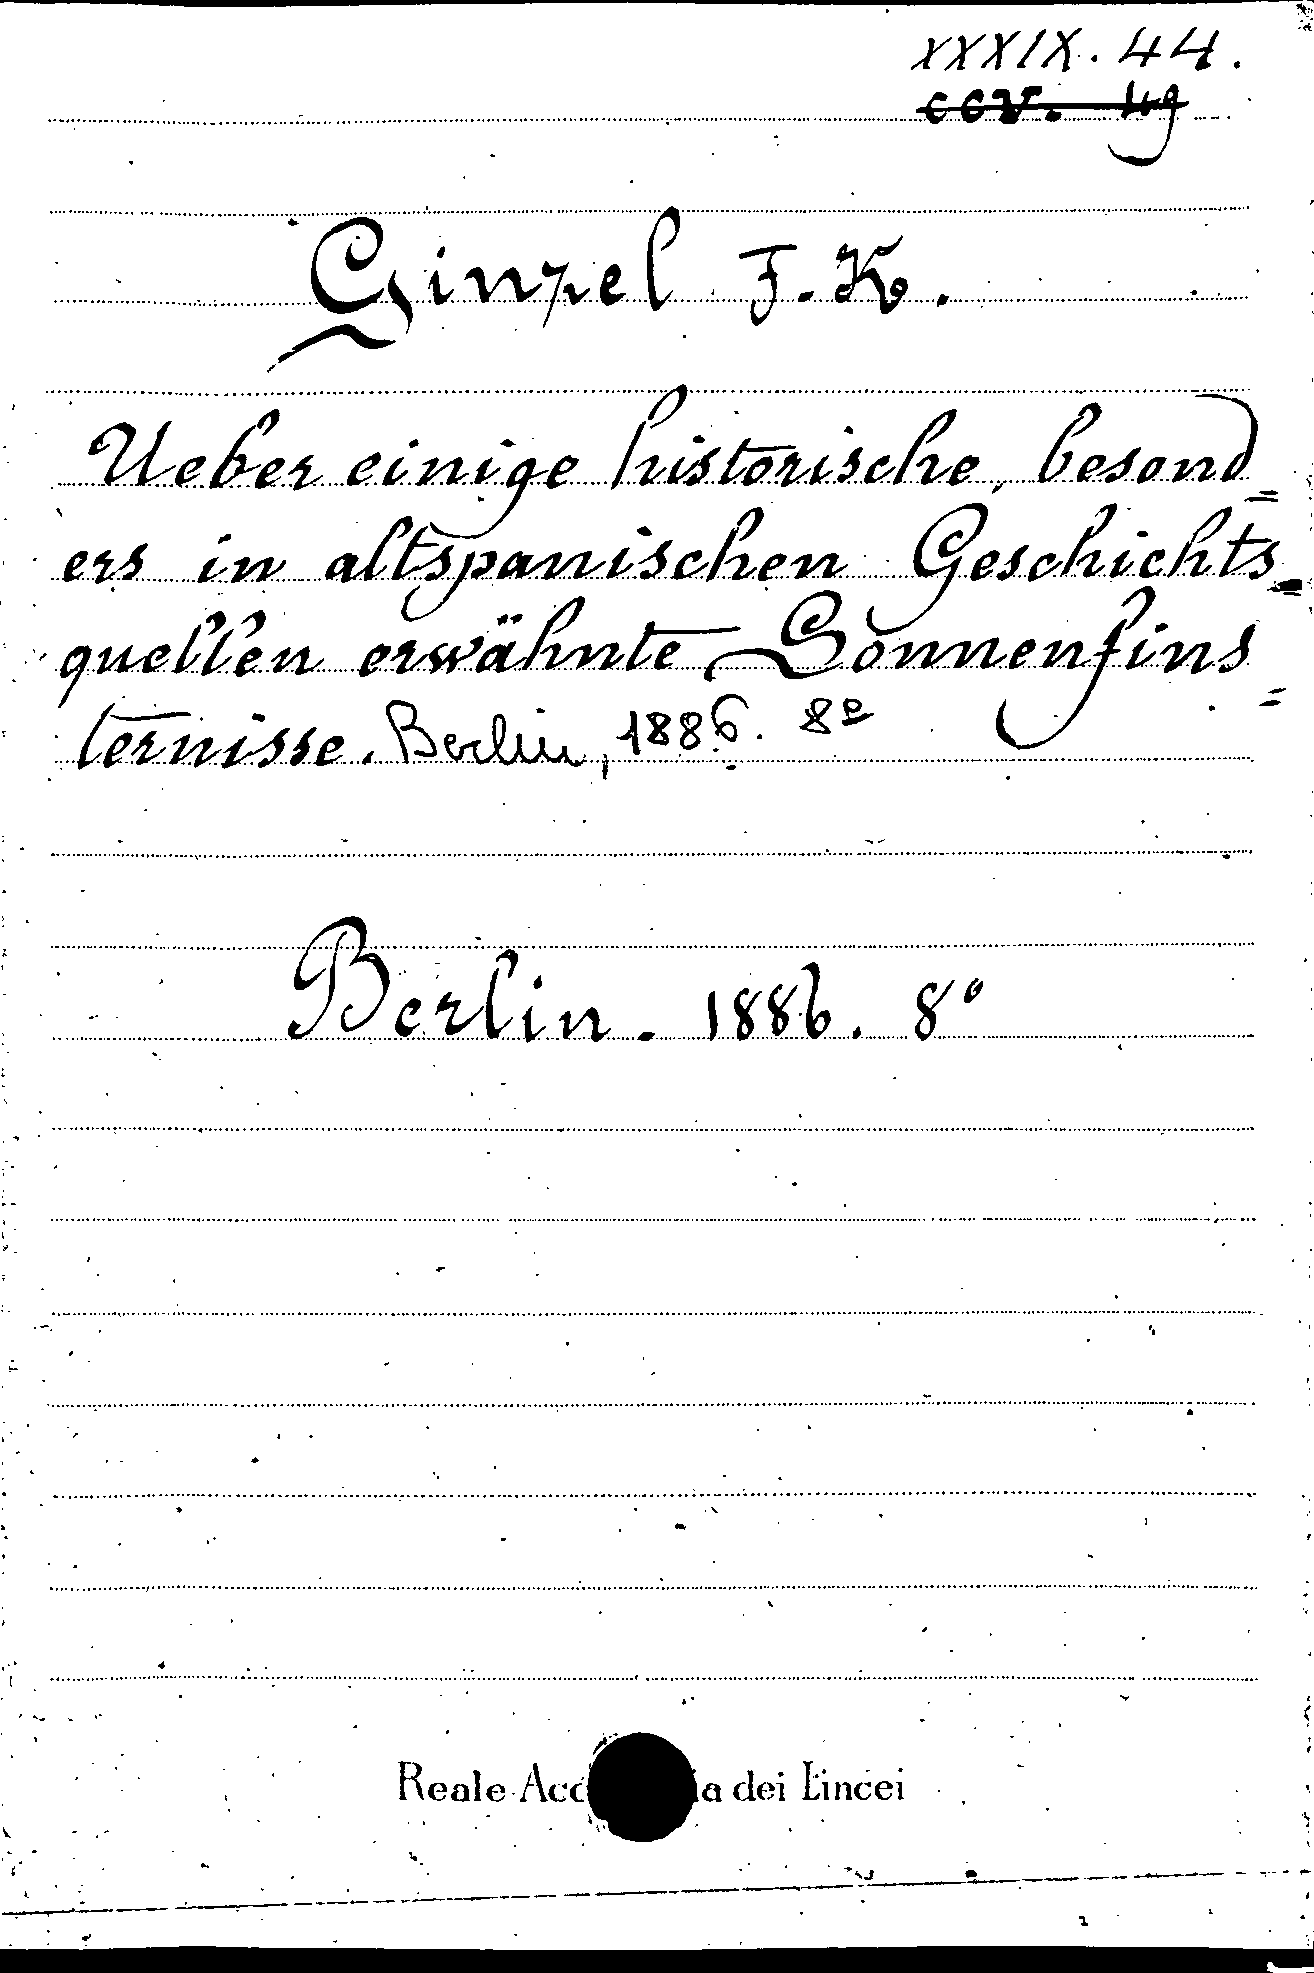 XXXIX. 44.
CCV. 49
Ginzel F. K.
Ueber einige historische, besond=
ers in altspanischen Geschichts=
quellen erwähnte Sonnenfins=
ternisse. Berlin, 1886. 8º
Berlin. 1886. 8º
Reale Acc ia dei Lincei